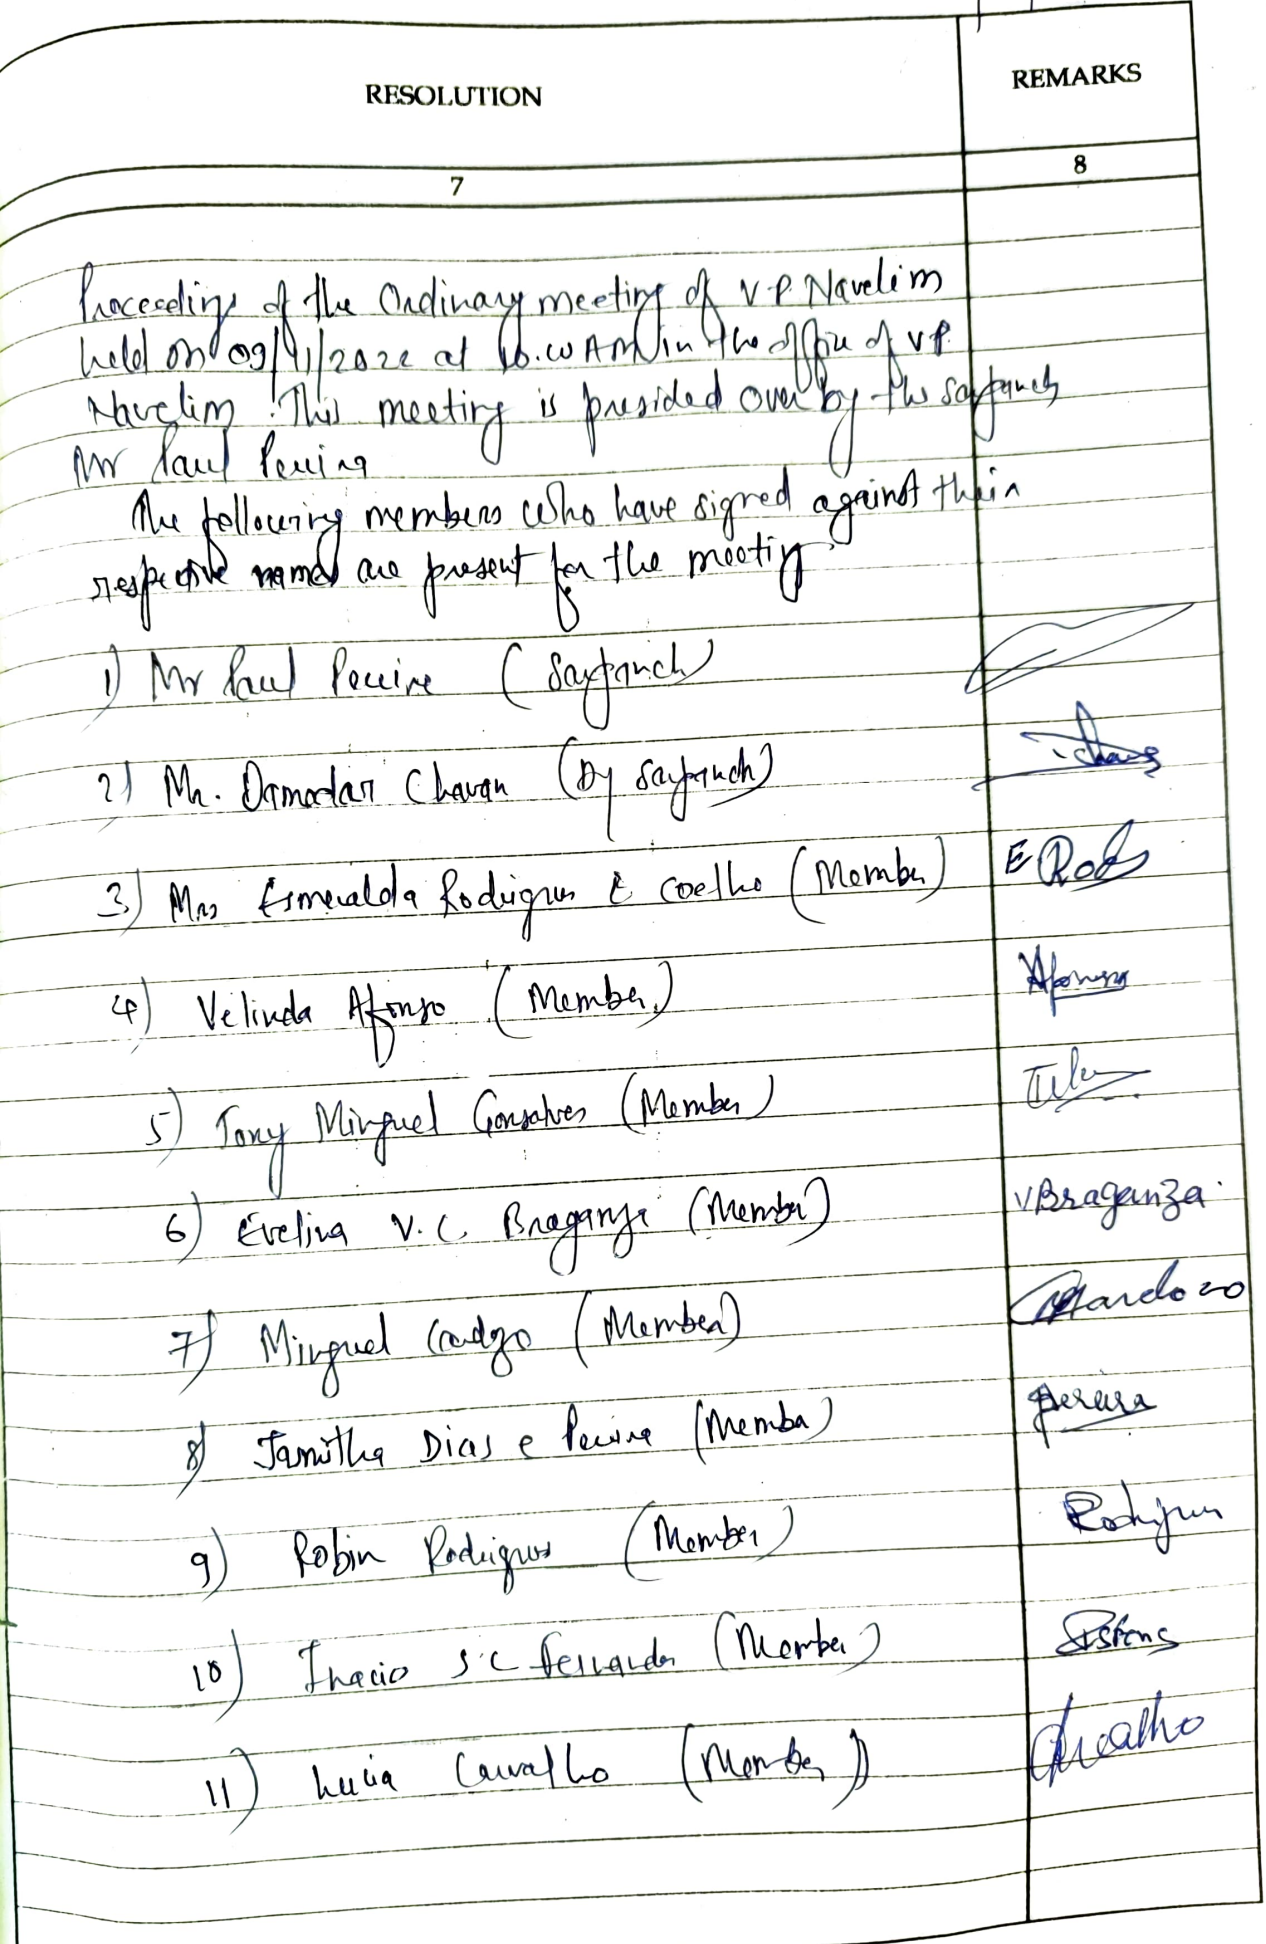 RESOLUTION
REMARKS
7
8
Proceeding of the Ordinary meeting of V.P. Navelim
held on 09/11/2022 at 10.00 AM in the office of V.P.
Navelim. This meeting is presided over by the sarpanch
Mr Paul Pereira
The following members who have signed against their
respective names are present for the meeting.
1) Mr Paul Pereira (Sarpanch)
2) Mr. Damodar Chavan (Dy Sarpanch)
3) Mrs Esmeralda Rodrigues E Coelho (Member)
E Rod
4) Velinda Afonso (Member)
Afonso
5) Tony Minguel Gonsalves (Member)
6) Evelina V. C. Braganza (Member)
VBraganza
7) Minguel Cardozo (Member)
Cardozo
8) Jamitha Dias e Pereira (Member)
Pereira
9) Robin Rodrigues (Member)
Rodrigues
10) Inacio S.C Fernandes (Member)
11) Lucia Carvalho (Member)
Carvalho